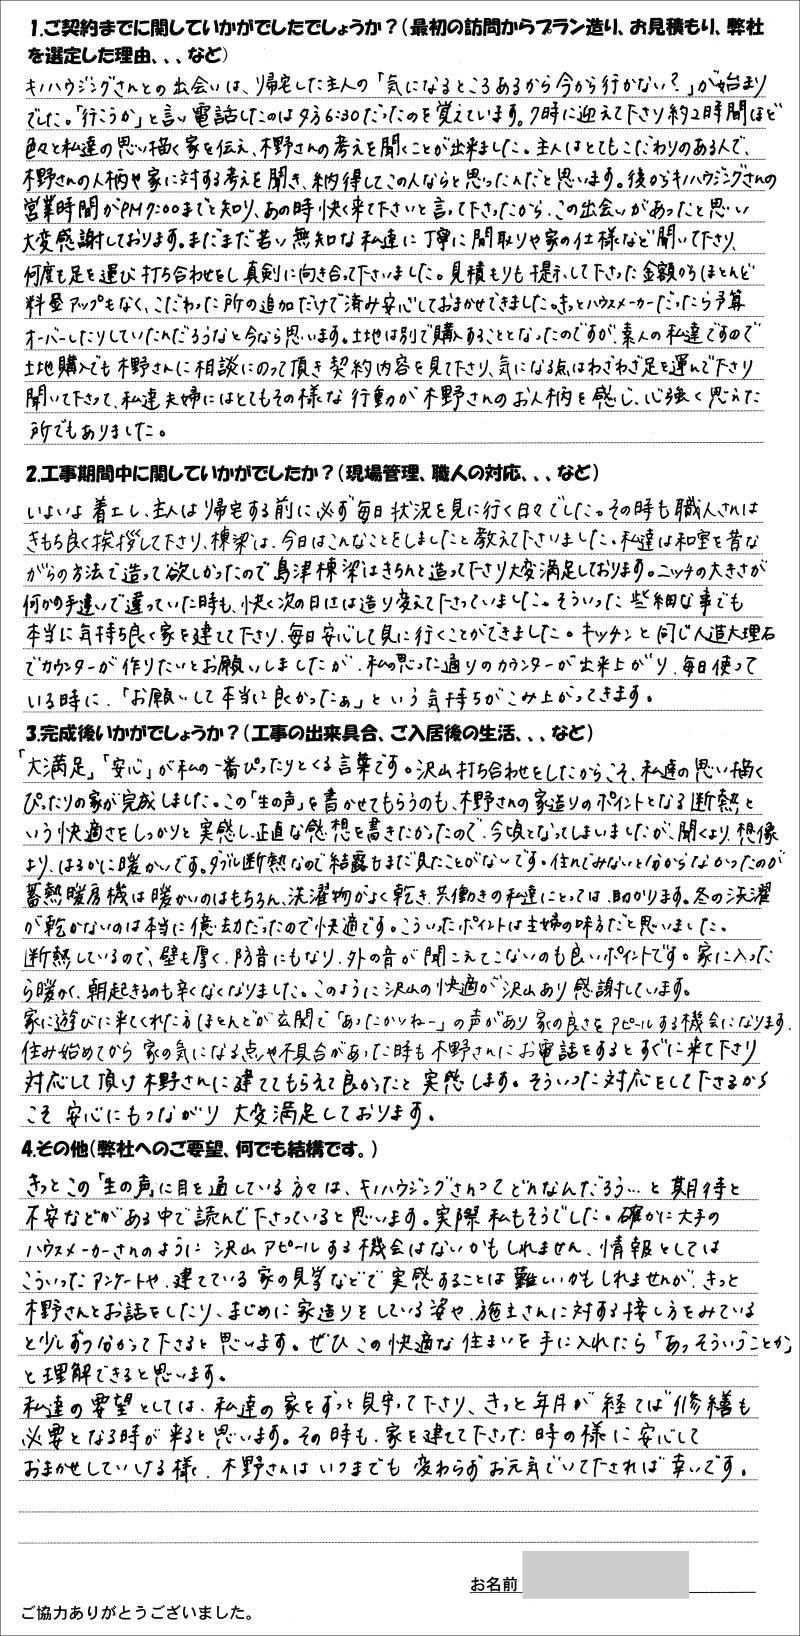 1.ご契約までに関していかがでしたでしょうか？（最初の訪問からプラン造り、お見積もり、弊社
を選定した理由、、、など）
キノハウジングさんとの出会いは、帰宅した主人の「気になるところあるから今から行かない？」が始まり
でした。「行こうか」と言い電話したのは夕方6:30だったのを覚えています。7時に迎えて下さり約2時間ほど
色々と私達の思い描く家を伝え、木野さんの考えを聞くことが出来ました。主人はとてもこだわりのある人で、
木野さんの人柄や家に対する考えを聞き、納得してこの人ならと思ったんだと思います。後からキノハウジングさんの
営業時間がPM7:00までと知り、あの時快く来て下さいと言って下さったから、この出会いがあったと思い
大変感謝しております。まだまだ若い無知な私達に丁寧に間取りや家の仕様など聞いて下さり、
何度も足を運び打ち合わせをし真剣に向き合って下さいました。見積もりも提示して下さった金額からほとんど
料金アップもなく、こだわった所の追加だけで済み安心しておまかせできました。きっとハウスメーカーだったら予算
オーバーしたりしていたんだろうなと今なら思います。土地は別で購入することとなったのですが、素人の私達ですので
土地購入でも木野さんに相談にのって頂き契約内容を見て下さり、気になる点はわざわざ足を運んで下さり
聞いて下さって、私達夫婦にはとてもその様な行動が木野さんのお人柄を感じ、心強く思えた
所でもありました。
2.工事期間中に関していかがでしたか？（現場管理、職人の対応、、、など）
いよいよ着工し、主人は帰宅する前に必ず毎日状況を見に行く日々でした。その時も職人さんは
きもち良く挨拶して下さり、棟梁は、今日はこんなことをしましたと教えて下さいました。私達は和室を昔な
がらの方法で造って欲しかったので島津棟梁はきちんと造って下さり大変満足しております。ニッチの大きさが
何かの手違いで違っていた時も、快く次の日には造り変えて下さっていました。そういった些細な事でも
本当に気持ち良く家を建てて下さり、毎日安心して見に行くことができました。キッチンと同じ人造大理石
でカウンターが作りたいとお願いしましたが、私の思った通りのカウンターが出来上がり、毎日使って
いる時に、「お願いして本当に良かったぁ」という気持ちがこみ上がってきます。
3.完成後いかがでしょうか？（工事の出来具合、ご入居後の生活、、、など）
「大満足」「安心」が私の一番ぴったりとくる言葉です。沢山打ち合わせをしたからこそ、私達の思い描く
ぴったりの家が完成しました。この「生の声」を書かせてもらうのも、木野さんの家造りのポイントとなる断熱と
いう快適さをしっかりと実感し、正直な感想を書きたかったので、今頃となってしまいましたが、聞くより、想像
より、はるかに暖かいです。ダブル断熱なので結露もまだ見たことがないです。住んでみないと分からなかったのが
蓄熱暖房機は暖かいのはもちろん、洗濯物がよく乾き、共働きの私達にとっては、助かります。冬の洗濯
が乾かないのは本当に億劫だったので快適です。こういったポイントは主婦の味方だと思いました。
断熱しているので、壁も厚く、防音にもなり、外の音が聞こえてこないのも良いポイントです。家に入った
ら暖かく、朝起きるのも辛くなくなりました。このように沢山の快適が沢山あり感謝しています。
家に遊びに来てくれた方ほとんどが玄関で「あったかいねー」の声があり家の良さをアピールする機会になります。
住み始めてから家の気になる点や不具合があった時も木野さんにお電話をするとすぐに来て下さり
対応して頂け木野さんに建ててもらえて良かったと実感します。そういった対応をして下さるから
こそ安心にもつながり大変満足しております。
4.その他（弊社へのご要望、何でも結構です。）
きっとこの「生の声」に目を通している方々は、キノハウジングさんってどんなんだろう…と期待と
不安などがある中で読んで下さっていると思います。実際私もそうでした。確かに大手の
ハウスメーカーさんのように沢山アピールする機会はないかもしれません、情報としては
こういったアンケートや、建てている家の見学などで実感することは難しいかもしれませんが、きっと
木野さんとお話をしたり、まじめに家造りをしている姿や、施主さんに対する接し方をみている
と少しずつ分かって下さると思います。ぜひこの快適な住まいを手に入れたら「あっそういうことか」
と理解できると思います。
私達の要望としては、私達の家をずっと見守って下さり、きっと年月が経てば修繕も
必要となる時が来ると思います。その時も、家を建てて下さった時の様に安心して
おまかせしていける様、木野さんはいつまでも変わらずお元気でいて下されば幸いです。
お名前
ご協力ありがとうございました。